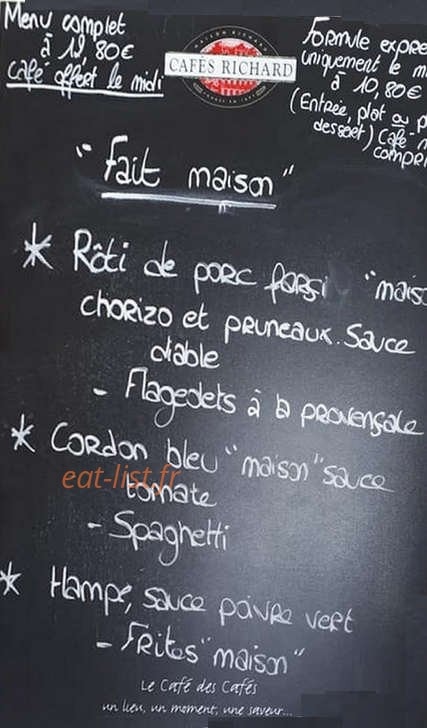 Menu complet
à 19,80€
Café offert le midi
MAISON RICHARD
CAFÉS RICHARD
Formule expre
uniquement le m
à 10,80€
(Entrée, plat ou p
dessert) Café
compri
"Fait maison"
* Rôti de porc farsi "mais
chorizo et pruneaux. Sauce
diable
- Flageolets à la provençale
* Cordon bleu "maison" sauce
tomate
eat-list.fr
- Spaghetti
* Hampe, sauce poivre vert
- Frites "maison"
Le Café des Cafés
un lieu, un moment, une saveur...